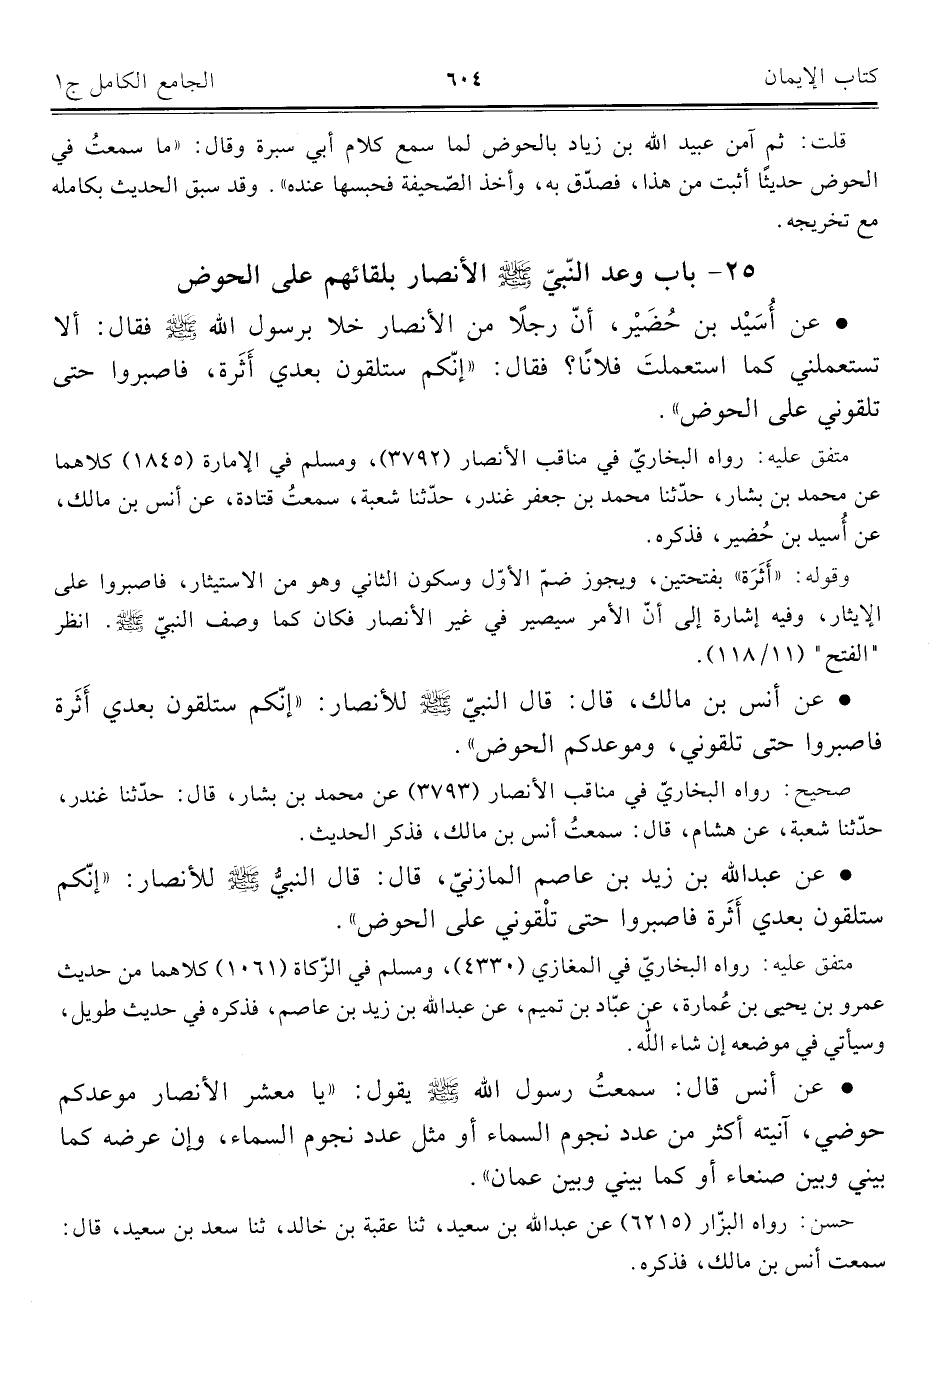 كتاب الإيمان ٦٠٤ الجامع الكامل ج١
قلت: ثم آمن عبيد الله بن زياد بالحوض لما سمع كلام أبي سبرة وقال: «ما سمعتُ في
الحوض حديثًا أثبت من هذا، فصدّق به، وأخذ الصّحيفة فحبسها عنده». وقد سبق الحديث بكامله
مع تخريجه.
٢٥- باب وعد النّبيّ ﷺ الأنصار بلقائهم على الحوض
● عن أُسَيْد بن حُضَيْر، أنّ رجلًا من الأنصار خلا برسول الله ﷺ فقال: ألا
تستعملني كما استعملتَ فلانًا؟ فقال: «إنّكم ستلقون بعدي أَثَرة، فاصبروا حتى
تلقوني على الحوض».
متفق عليه: رواه البخاريّ في مناقب الأنصار (٣٧٩٢)، ومسلم في الإمارة (١٨٤٥) كلاهما
عن محمد بن بشار، حدّثنا محمد بن جعفر غندر، حدّثنا شعبة، سمعتُ قتادة، عن أنس بن مالك،
عن أُسيد بن حُضير، فذكره.
وقوله: «أَثَرَة» بفتحتين، ويجوز ضمّ الأوّل وسكون الثاني وهو من الاستيثار، فاصبروا على
الإيثار، وفيه إشارة إلى أنّ الأمر سيصير في غير الأنصار فكان كما وصف النبيّ ﷺ. انظر
"الفتح" (١١/ ١١٨).
● عن أنس بن مالك، قال: قال النبيّ ﷺ للأنصار: «إنّكم ستلقون بعدي أَثَرة
فاصبروا حتى تلقوني، وموعدكم الحوض».
صحيح: رواه البخاريّ في مناقب الأنصار (٣٧٩٣) عن محمد بن بشار، قال: حدّثنا غندر،
حدّثنا شعبة، عن هشام، قال: سمعتُ أنس بن مالك، فذكر الحديث.
● عن عبدالله بن زيد بن عاصم المازنيّ، قال: قال النبيُّ ﷺ للأنصار: «إنّكم
ستلقون بعدي أَثَرة فاصبروا حتى تلْقوني على الحوض».
متفق عليه: رواه البخاريّ في المغازي (٤٣٣٠)، ومسلم في الزّكاة (١٠٦١) كلاهما من حديث
عمرو بن يحيى بن عُمارة، عن عبّاد بن تميم، عن عبدالله بن زيد بن عاصم، فذكره في حديث طويل،
وسيأتي في موضعه إن شاء الله.
● عن أنس قال: سمعتُ رسول الله ﷺ يقول: «يا معشر الأنصار موعدكم
حوضي، آنيته أكثر من عدد نجوم السماء أو مثل عدد نجوم السماء، وإن عرضه كما
بيني وبين صنعاء أو كما بيني وبين عمان».
حسن: رواه البزّار (٦٢١٥) عن عبدالله بن سعيد، ثنا عقبة بن خالد، ثنا سعد بن سعيد، قال:
سمعت أنس بن مالك، فذكره.